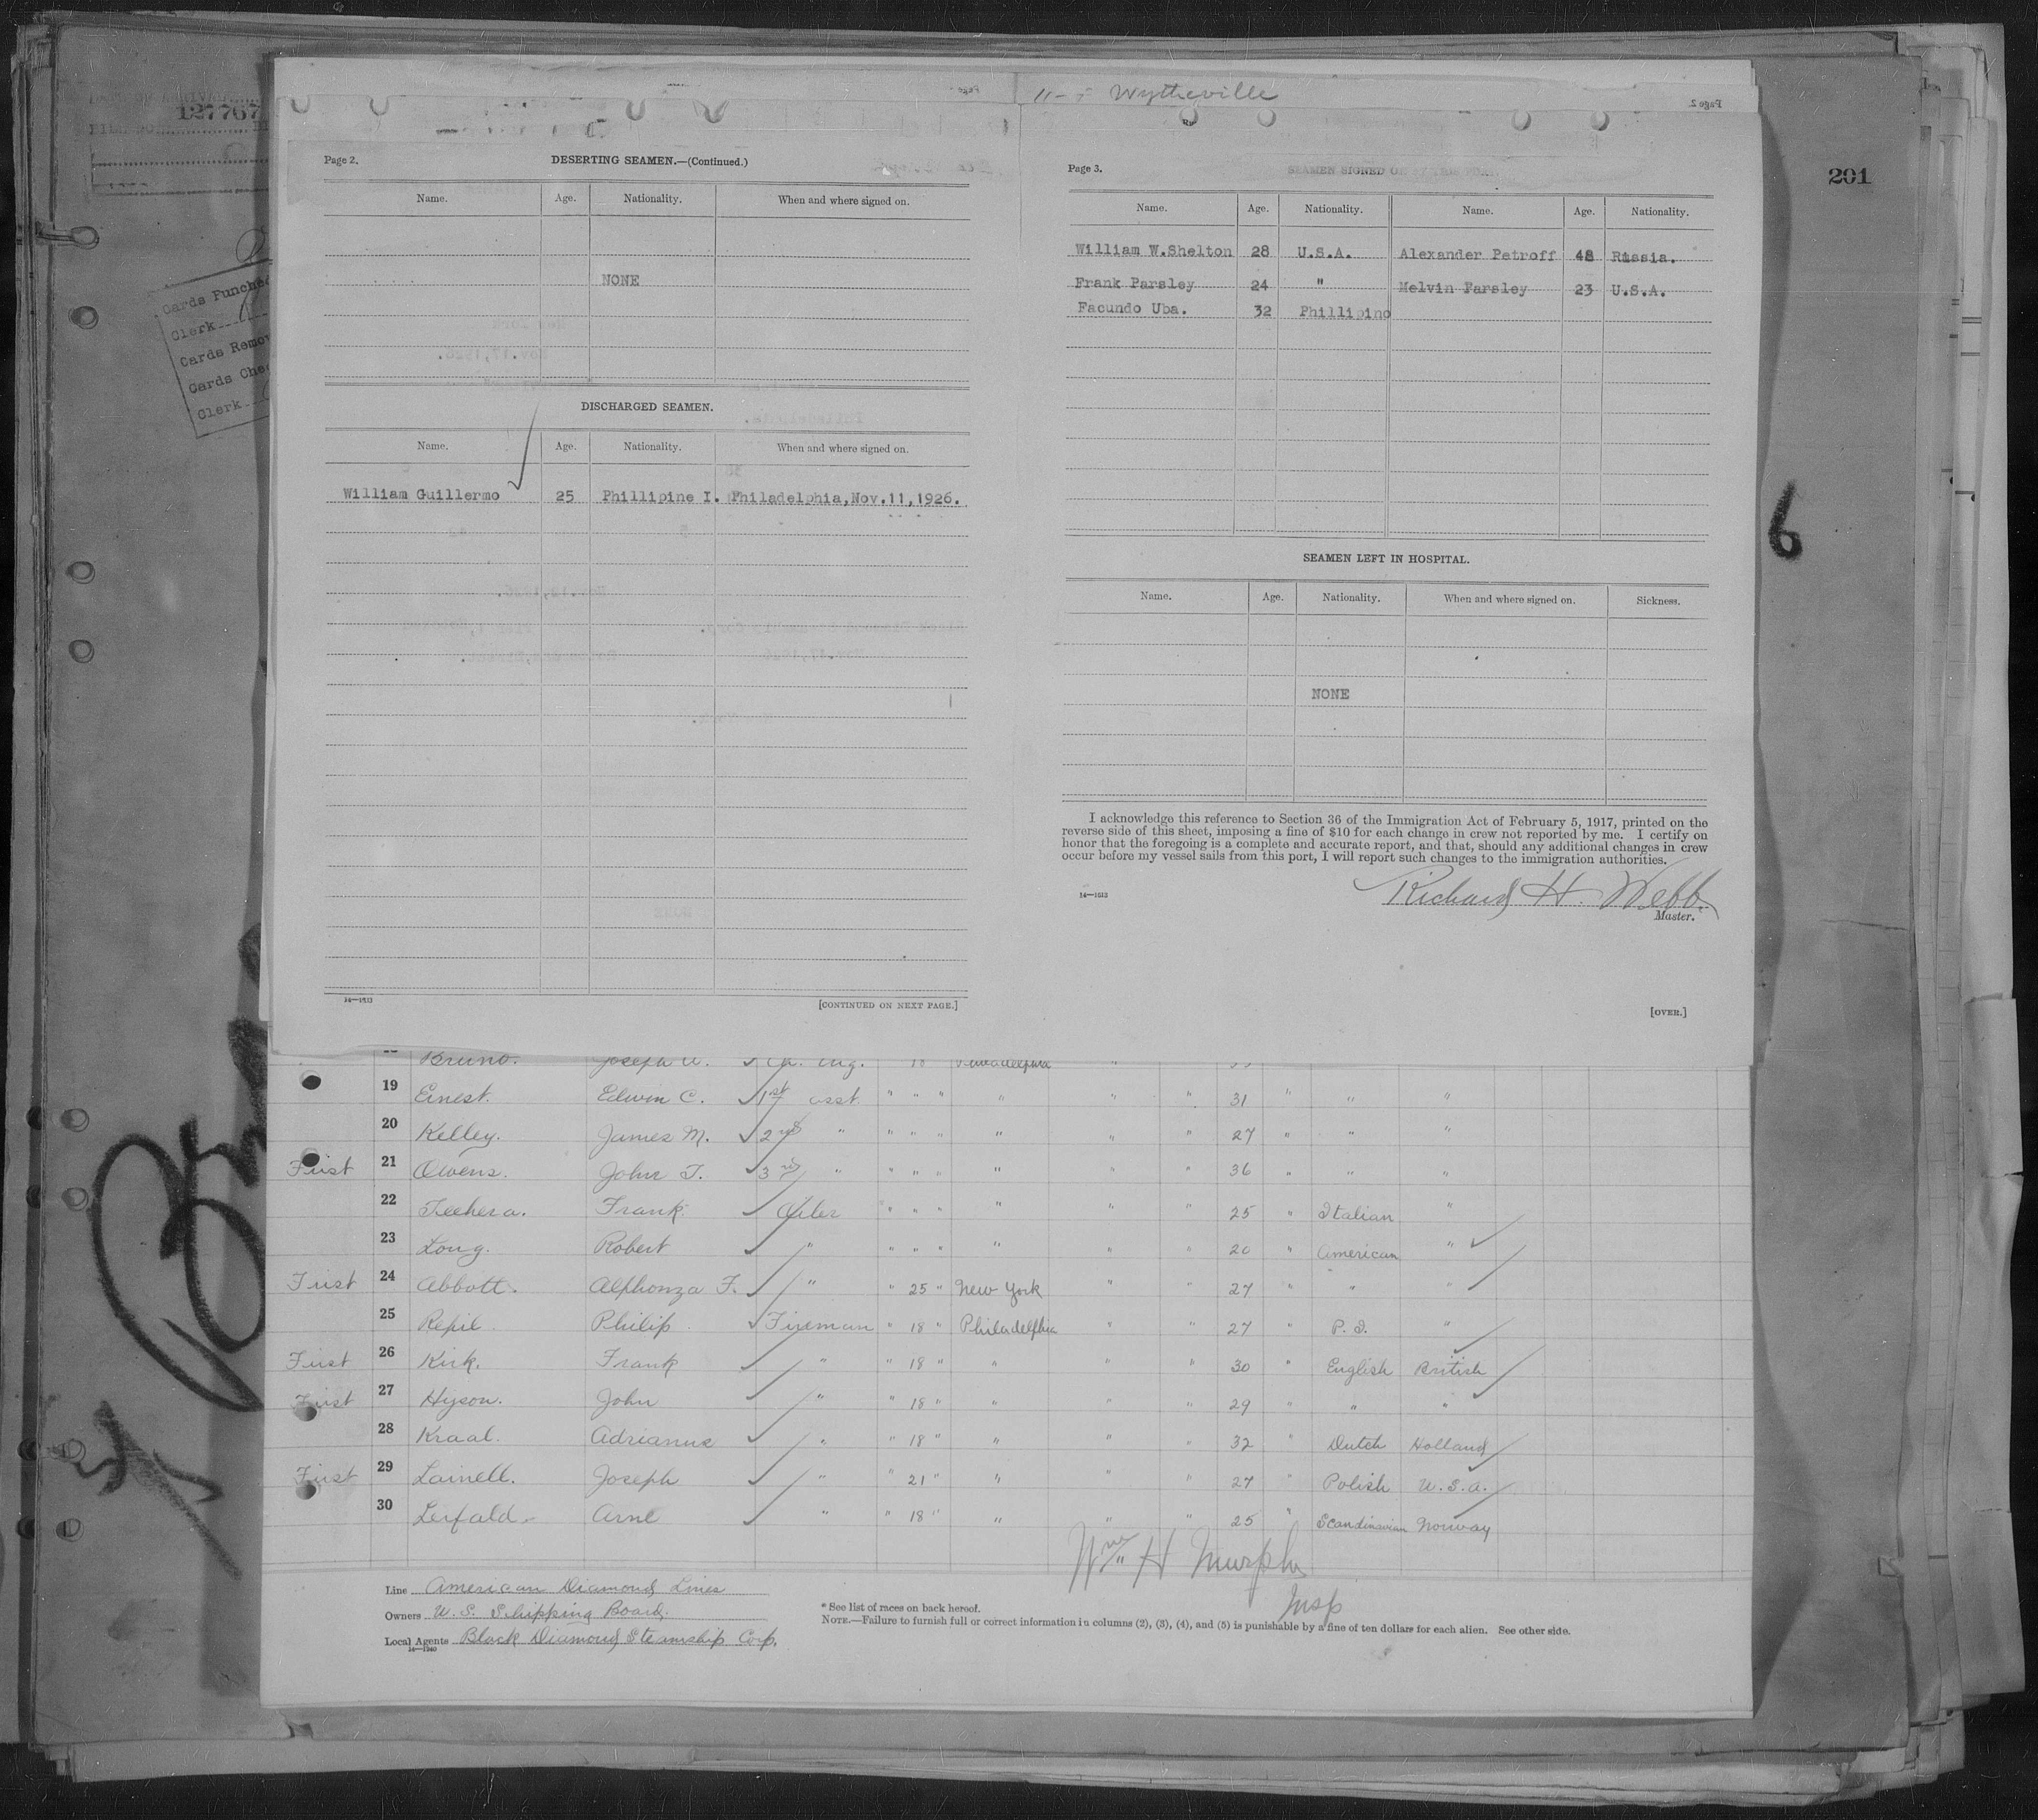 127767
201
Cards Punched
Clerk
Cards Remov
Cards Chec
Clerk
6
Wytheville
Page 2
Page 2.
DESERTING SEAMEN.—(Continued.)
Name. Age. Nationality. When and where signed on.
NONE
DISCHARGED SEAMEN.
Name. Age. Nationality. When and where signed on.
William Guillermo 25 Phillipine I. Philadelphia,Nov.11,1926.
14—1513
[CONTINUED ON NEXT PAGE.]
Page 3.
SEAMEN SIGNED ON
Name. Age. Nationality. Name. Age. Nationality.
William W.Shelton 28 U.S.A. Alexander Petroff 48 Russia.
Frank Parsley 24 " Melvin Parsley 23 U.S.A.
Facundo Uba. 32 Phillipino
SEAMEN LEFT IN HOSPITAL.
Name. Age. Nationality. When and where signed on. Sickness.
NONE
I acknowledge this reference to Section 36 of the Immigration Act of February 5, 1917, printed on the
reverse side of this sheet, imposing a fine of $10 for each change in crew not reported by me. I certify on
honor that the foregoing is a complete and accurate report, and that, should any additional changes in crew
occur before my vessel sails from this port, I will report such changes to the immigration authorities.
14—1513
Richard H. Webb
Master.
[OVER.]
Bruno. Joseph A. Ch. Eng. 18 Philadelphia "
19 Ernest. Edwin C. 1st asst " " " " " " 31 " " "
20 Kelley. James M. 2nd " " " " " " " 27 " " "
First 21 Owens. John T. 3rd " " " " " " " 36 " " "
22 Teehera. Frank. Oiler " " " " " " 25 " Italian "
23 Long. Robert " " " " " " " 20 " American "
First 24 Abbott. Alphonza F. " " 25 " New York " " 27 " " "
25 Repil Philip. Fireman " 18 " Philadelphia " " 27 " P.I. "
First 26 Kirk. Frank " " 18 " " " " 30 " English British
First 27 Hyson. John " " 18 " " " " 29 " " "
28 Kraal. Adrianus " " 18 " " " " 32 " Dutch Holland
First 29 Lainell. Joseph " " 21 " " " " 27 " Polish U.S.A.
30 Lerfald Arne " " 18 " " " " 25 " Scandinavian Norway
Wm H Murphy
Insp
Line American Diamond Lines
Owners U.S. Shipping Board.
Local Agents Black Diamond Steamship Corp.
14—1240
* See list of races on back hereof.
NOTE.—Failure to furnish full or correct information in columns (2), (3), (4), and (5) is punishable by a fine of ten dollars for each alien. See other side.